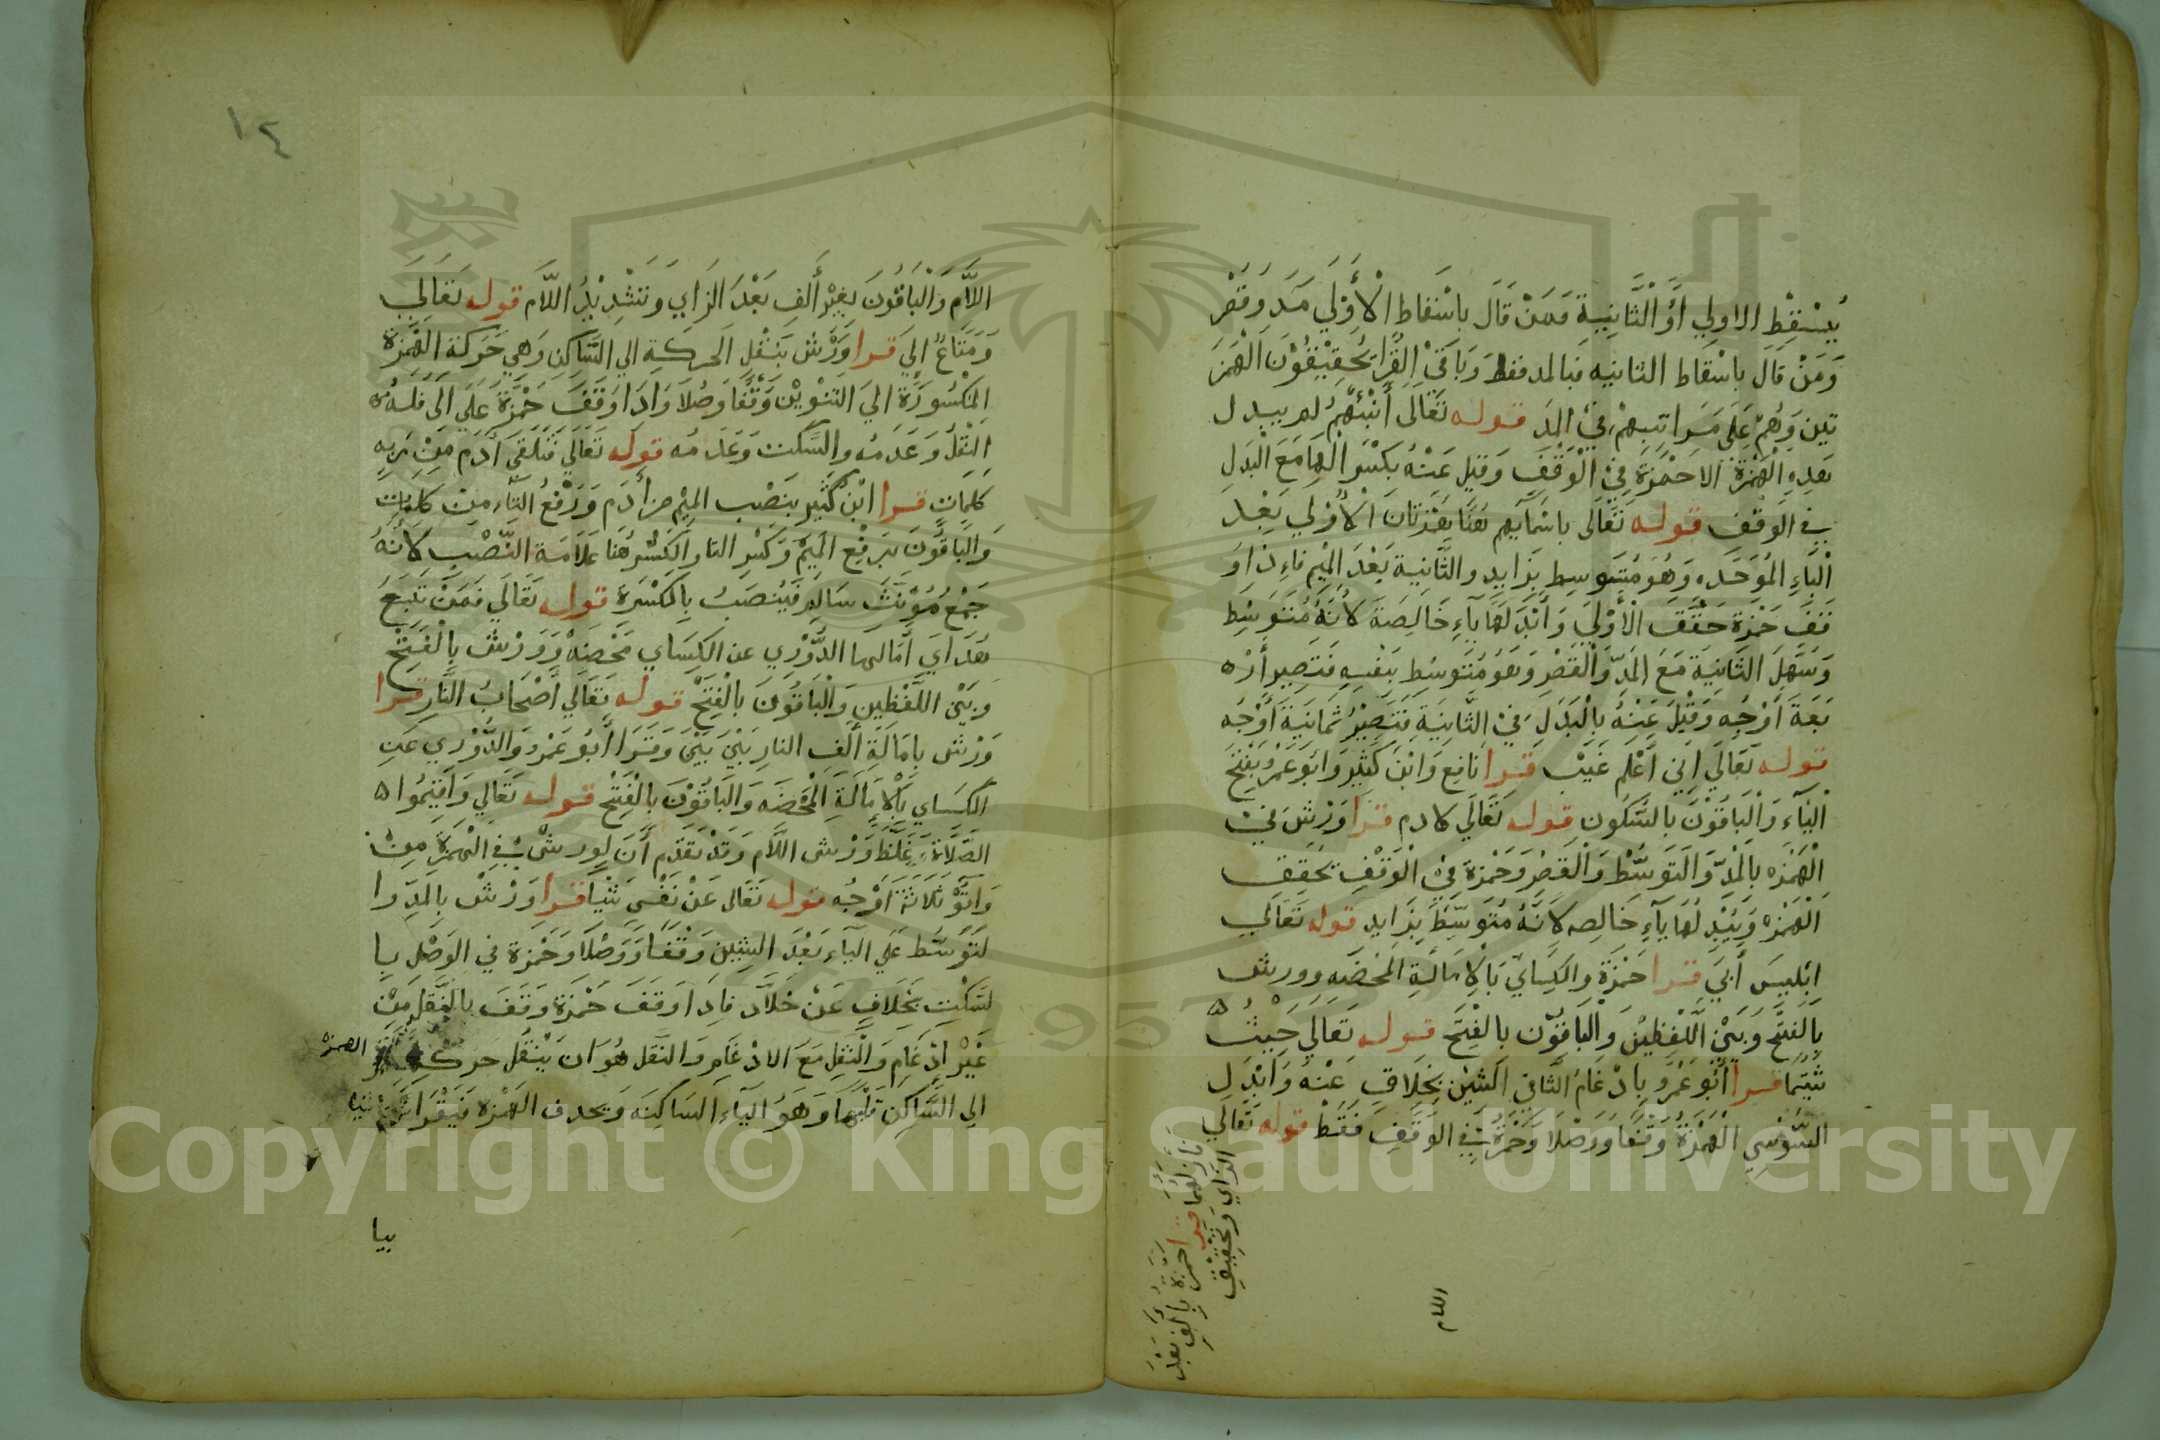 يسقط الاولي أو الثانية فمن قال باسقاط الأولي مد وقصر
ومن قال باسقاط الثانيه فبالمد فقط وباقي القرا بتحقيق الهمز
تين وهم علي مراتبهم في المد قوله تعالى أنبئهم لم يبدل
هذه الهمزة الا حمزة في الوقف وقيل عنه بكسر الها مع البدل
في الوقف قوله تعالى باسمآيهم هنا همزتان الأولي بعد
الباء الموحده وهو متوسط بزايد والثانية بعد الميم فاءذا و
قف حمزة حقق الأولي وأبدلها ياء خالصة لأنه متوسط
وسهل الثانية مع المد والقصر وهو متوسط بنفسه فتصير أر
بعة أوجه وقيل عنه بالبدل في الثانية فتصير ثمانية أوجه
قوله تعالي اني أعلم غيب قرا نافع وابن كثير وابو عمرو بفتح
اليآء والباقون بالسكون قوله تعالي لادم قرا ورش في
الهمزه بالمد والتوسط والقصر وحمزة في الوقف بتحقيق
الهمزه ويبدلها ياء خالصه لأنه متوسط بزايد قوله تعالي
ابليس أبي قرا حمزة والكساي بالامالة المحضه وورش
بالفتح وبين اللفظين والباقون بالفتح قوله تعالي حيث
شيتما قرا أبو عمرو بادغام الثا في الشين بخلاف عنه وأبدل
السوسي الهمزة وقفا ووصلا وحمزة في الوقف فقط قوله تعالي
فأزلهما قرا حمزة بألف بعد
الزاي وتخفيف
اللام
١٤
اللام والباقون بغير ألف بعد الزاي وتشديد اللام قوله تعالي
ومتاع الي قرا ورش بنقل الحركة الي الساكن وهي حركة الهمزة
المكسورة الي التنوين وقفا وصلا واذا وقف حمزة علي الى فله
النقل وعدمه والسكت وعدمه قوله تعالي فتلقى أدم من ربه
كلمات قرا ابن كثير بنصب الميم من أدم ورفع التآء من كلمات
والباقون برفع الميم وكسر التا والكسر هنا علامة النصب لأنه
جمع مؤنث سالم فينصب بالكسرة قوله تعالي فمن تبع
هداي أمالها الدوري عن الكساي محضه وورش بالفتح
وبين اللفظين والباقون بالفتح قوله تعالي أصحاب النار قرا
ورش بامالة ألف النار بين بين وقرا أبو عمرو والدوري عن
الكساي بالامالة المحضه والباقون بالفتح قوله تعالي وأقيموا
الصلاة غلظ ورش اللام وقد تقدم أن لورش في الهمزة من
وآتو ثلاثة أوجه قوله تعالى عن نفس شيا قرا ورش بالمد وا
لتوسط علي الياء بعد الشين وقفا ووصلا وحمزة في الوصل با
لسكت بخلاف عن خلاد فاذا وقف حمزة وقف بالنقل من
غير ادغام والنقل مع الادغام والنقل هو ان ينقل حركة الهمزه
الي الساكن قبلها وهو اليآء الساكنه وتحذف الهمزه فيقرا
بيا
Copyright © King Saud University
1957